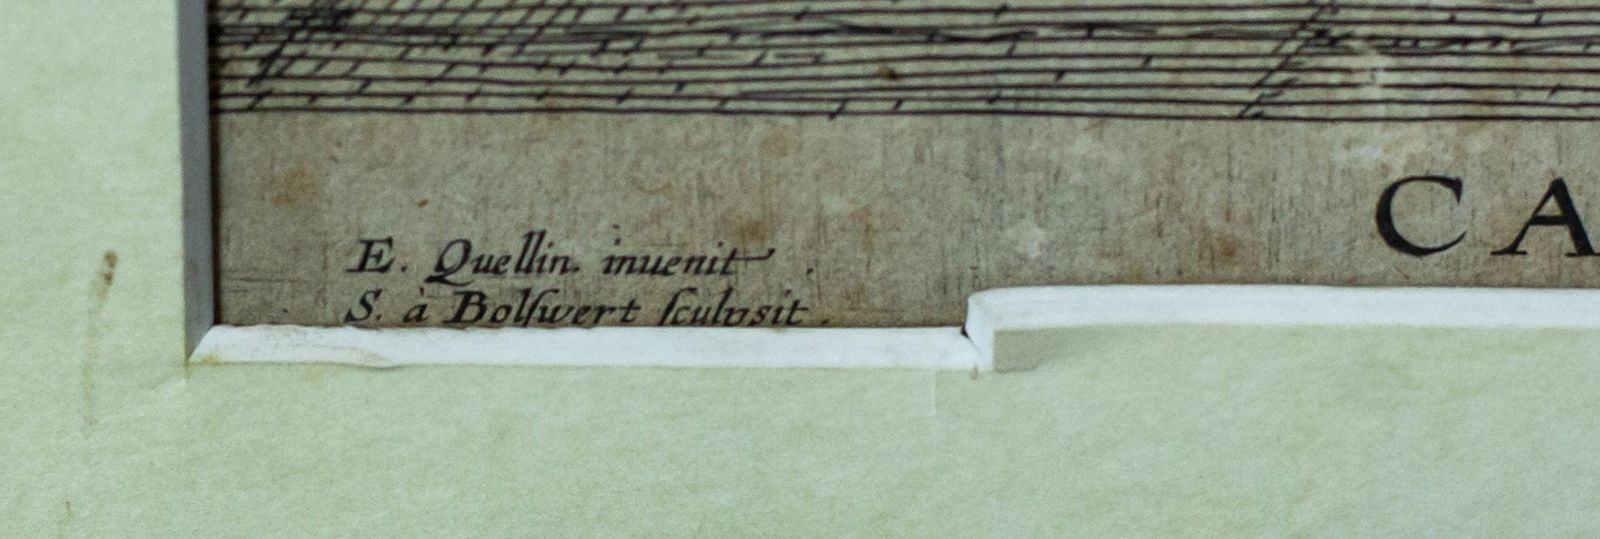 E. Quellin. inuenit
S. à Bolſwert ſculpsit.
CA